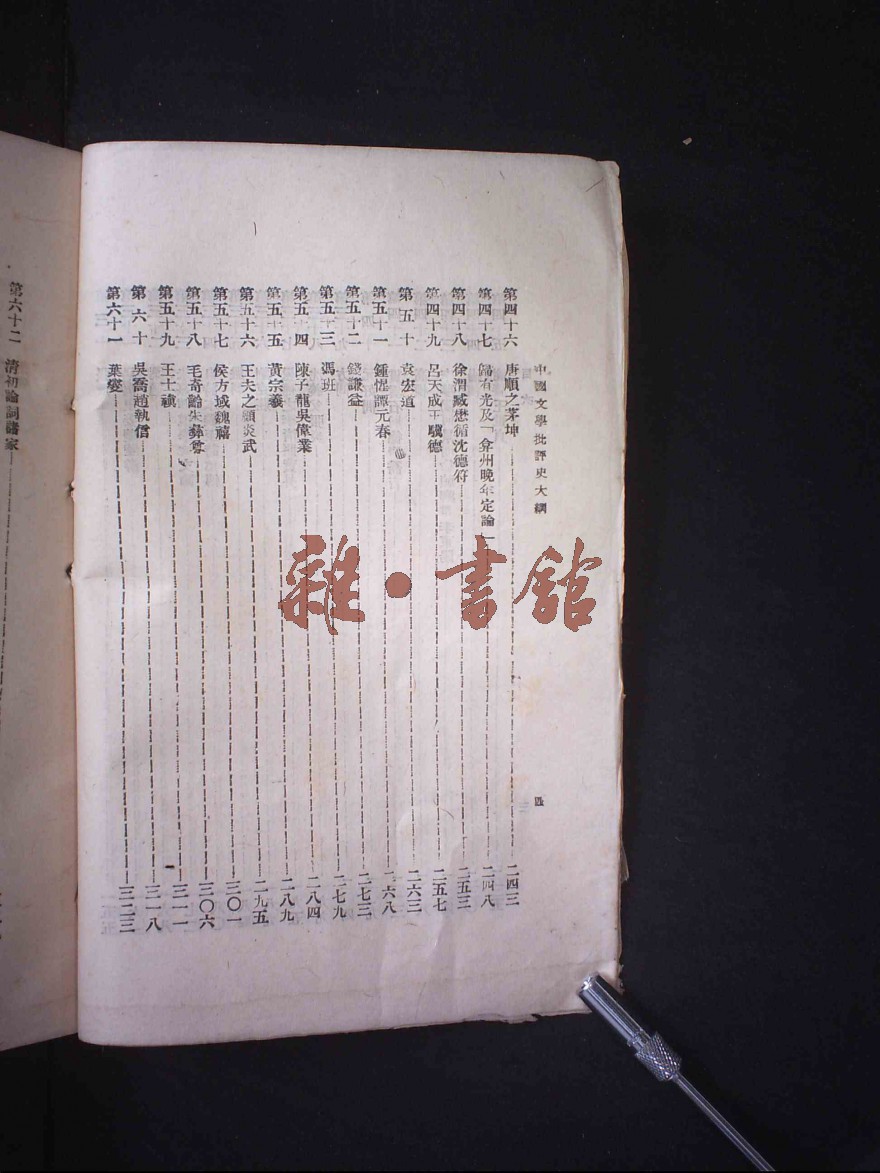 中國文學批評史大綱
四
第四十六 唐順之茅坤 二四三
第四十七 歸有光及「弇州晚年定論」 二四八
第四十八 徐渭臧懋循沈德符 二五三
第四十九 呂天成王驥德 二五七
第五十 袁宏道 二六三
第五十一 鍾惺譚元春 二六八
第五十二 錢謙益 二七三
第五十三 馮班 二七九
第五十四 陳子龍吳偉業 二八四
第五十五 黃宗羲 二八九
第五十六 王夫之顧炎武 二九五
第五十七 侯方域魏禧 三〇一
第五十八 毛奇齡朱彝尊 三〇六
第五十九 王士禛 三一一
第六十 吳喬趙執信 三一八
第六十一 葉燮 三二三
第六十二 清初論詞諸家
雜·書館